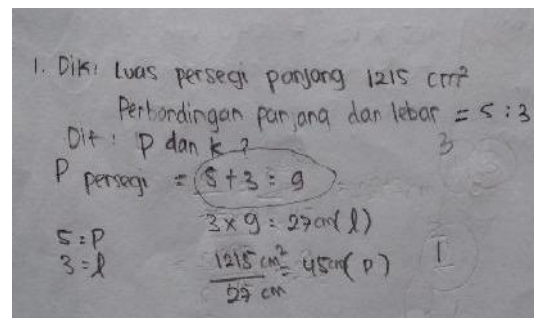 1. Dik: Luas persegi panjang 1215 cm²
Perbandingan panjang dan lebar = 5 : 3
Dit : P dan k ?
3
P persegi = 5 + 3 = 9
3 x 9 = 27 cm (l)
5 = P
3 = l
1215 cm² = 45 cm (p)
27 cm
1